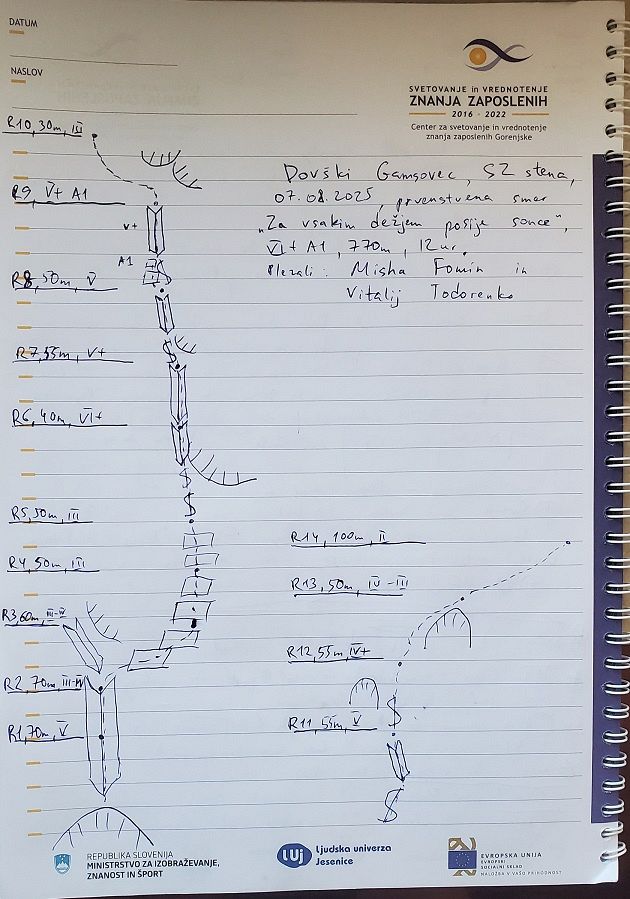 DATUM
NASLOV
SVETOVANJE in VREDNOTENJE
ZNANJA ZAPOSLENIH
2016 - 2022
Center za svetovanje in vrednotenje
znanja zaposlenih Gorenjske
Dovški Gamsovec, SZ stena,
07.08.2025, prvenstvena smer
„Za vsakim dežjem posije sonce",
VI+ A1, 770m, 12ur.
Plezali: Misha Fomin in
Vitalij Todorenko
R10, 30m, III
R9, V+ A1
V+
A1
R8, 50m, V
R7, 55m, V+
R6, 40m, VI+
R5, 50m, III
R4, 50m, III
R3, 60m, III-IV
R2, 70m, III-IV
R1, 70m, V
R14, 100m, II
R13, 50m, IV-III
R12, 55m, IV+
R11, 55m, V
REPUBLIKA SLOVENIJA
MINISTRSTVO ZA IZOBRAŽEVANJE,
ZNANOST IN ŠPORT
LUj
Ljudska univerza
Jesenice
EVROPSKA UNIJA
EVROPSKI
SOCIALNI SKLAD
NALOŽBA V VAŠO PRIHODNOST